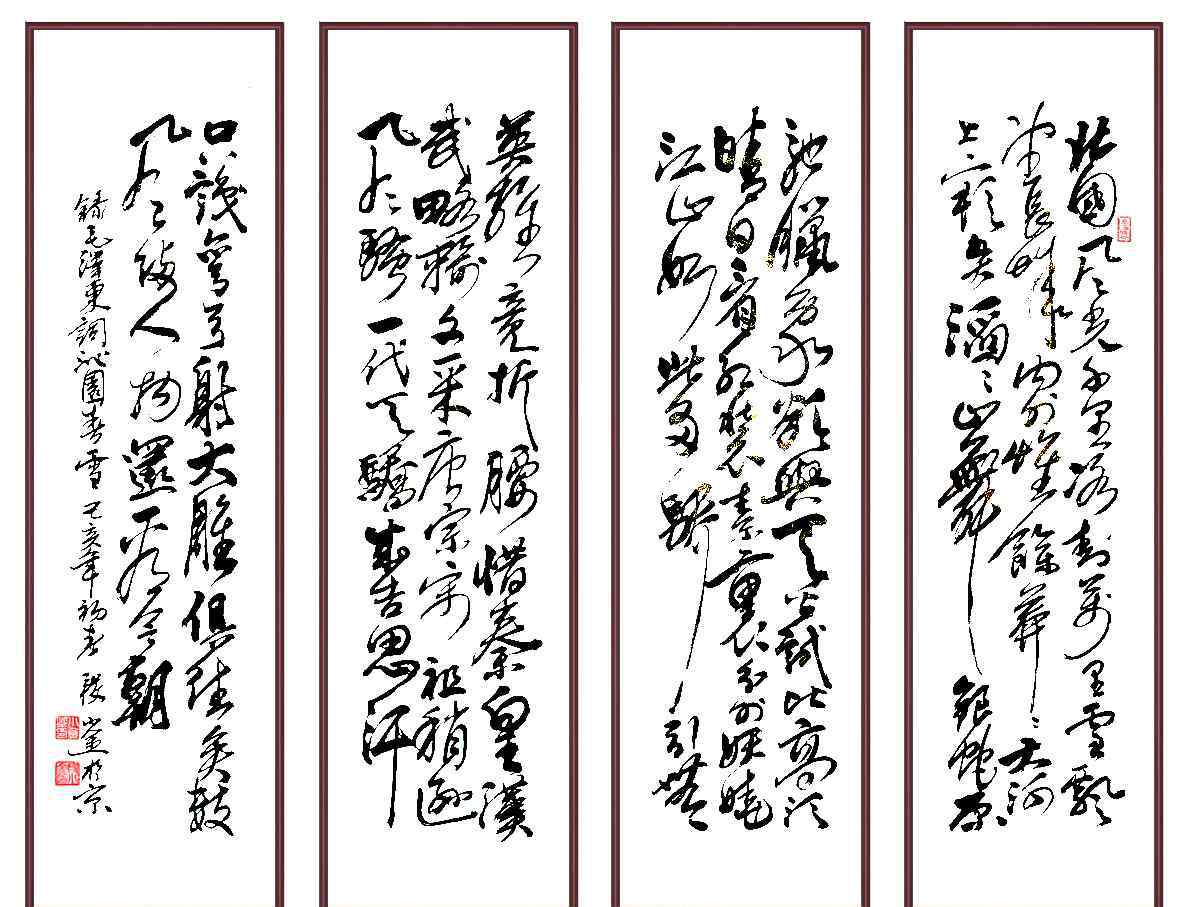 北國風光千里冰封萬里雪飄
望長城內外惟餘莽〻大河
上下頓失滔〻山舞銀蛇原
馳臘象欲與天公試比高須
晴日看紅裝素裹分外妖嬈
江山如此多嬌引無
英雄竞折腰惜秦皇漢
武略輸文采唐宗宋祖稍遜
風騷一代天驕成吉思汗
只識彎弓射大雕俱往矣數
風流人物還看今朝
錄毛澤東詞沁園春雪 己亥年初春 於京